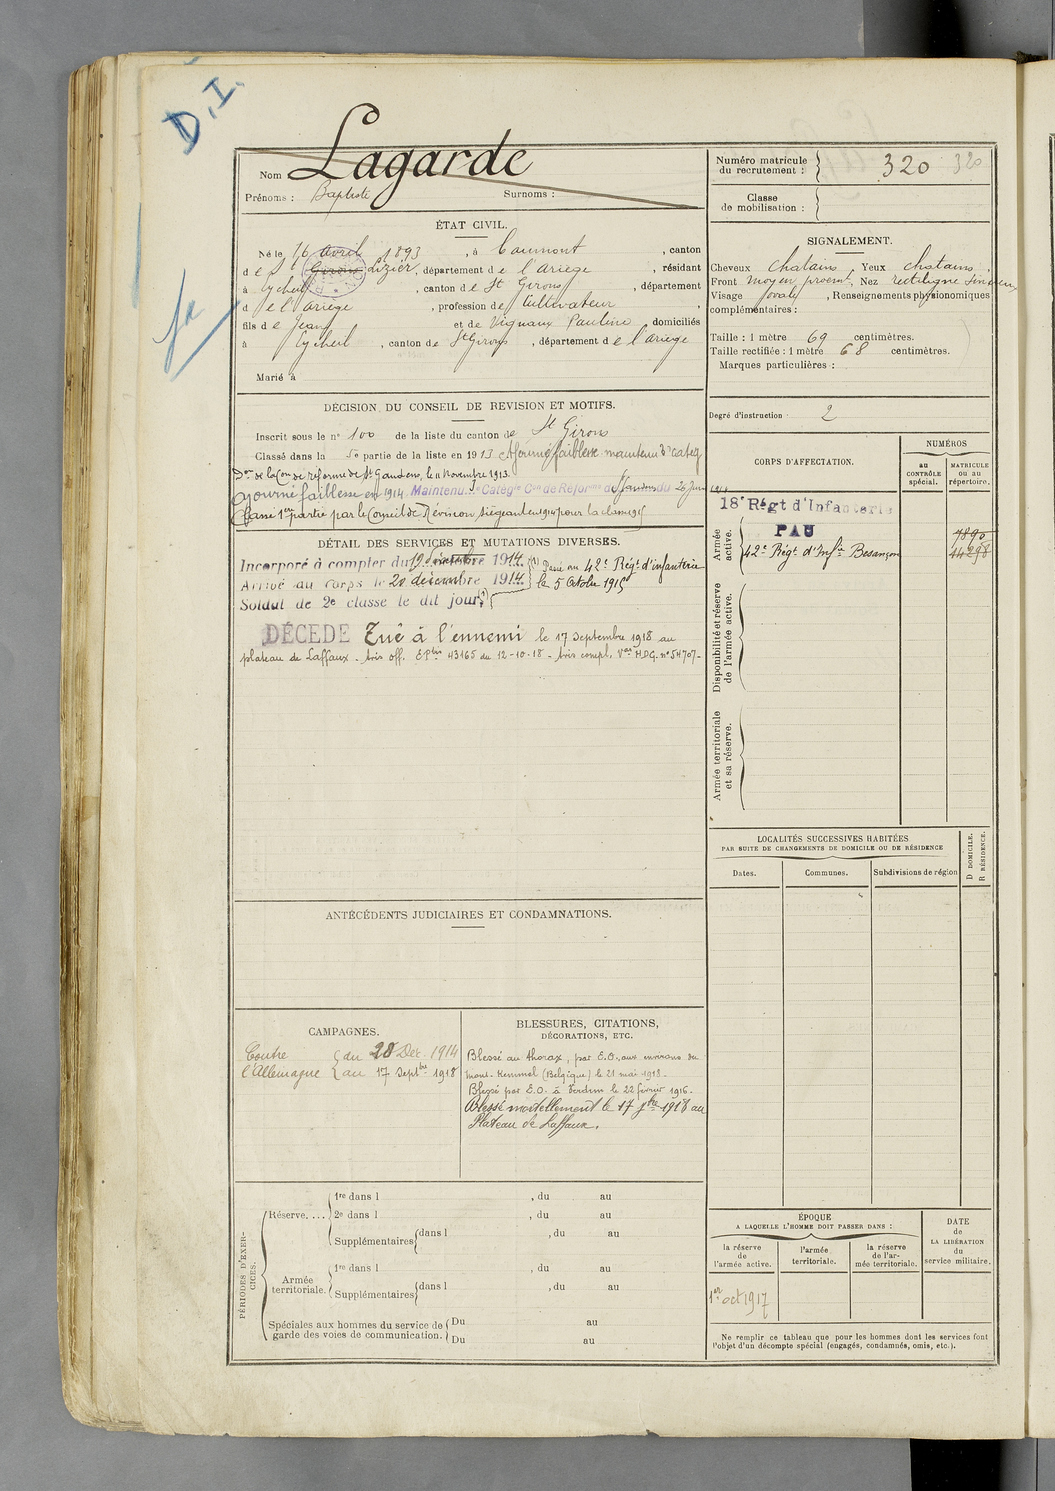 D.I.
Nom Lagarde
Prénoms : Baptiste Surnoms :
Numéro matricule du recrutement : 320 320
Classe de mobilisation :
ÉTAT CIVIL.
Né le 16 avril 1893, à Caumont, canton
de St Girons Lizier, département de l'Ariège, résidant
à Eycheil, canton de St Girons, département
de l'Ariège, profession de Cultivateur,
fils de Jean et de Vignaux Pauline domiciliés
à Eycheil, canton de St Girons, département de l'Ariège
Marié à
SIGNALEMENT.
Cheveux chatains, Yeux chatains,
Front moyen proemt, Nez rectiligne
Visage ovale, Renseignements physionomiques
complémentaires :
Taille : 1 mètre 69 centimètres.
Taille rectifiée : 1 mètre 68 centimètres.
Marques particulières :
Degré d'instruction 2
DÉCISION DU CONSEIL DE REVISION ET MOTIFS.
Inscrit sous le n° 100 de la liste du canton de St Girons
Classé dans la 5e partie de la liste en 1913. Ajourné faiblesse maintenu 3e categ
Don de la Con de réforme de St Gaudens, le 11 Novembre 1913.
Ajourné faiblesse en 1914. Maintenu Catégie Con de Réforme de St Gaudens du 20 Juin
Classé 1ère partie par le Conseil de Révision siégeant en 1914 pour la classe 1915
DÉTAIL DES SERVICES ET MUTATIONS DIVERSES.
Incorporé à compter du 19 décembre 1914.
Arrivé au corps le 20 décembre 1914.
Soldat de 2e classe le dit jour.(1)
(1) Passé au 42e Régt d'infanterie
le 5 Octobre 1915
DÉCÉDÉ Tué à l'ennemi le 17 septembre 1918 au
plateau de Laffaux - Avis off. 43165 du 12-10-18 - Avis compl. n° 54707 -
CORPS D'AFFECTATION.
NUMÉROS
au CONTRÔLE spécial.
MATRICULE ou au répertoire.
Armée active.
18e Régt d'Infanterie
PAU 7890
42e Régt d'Infie Besançon
Disponibilité et réserve de l'armée active.
Armée territoriale et sa réserve.
LOCALITÉS SUCCESSIVES HABITÉES
PAR SUITE DE CHANGEMENTS DE DOMICILE OU DE RÉSIDENCE
D DOMICILE.
R RÉSIDENCE.
Dates. Communes. Subdivisions de région
ANTÉCÉDENTS JUDICIAIRES ET CONDAMNATIONS.
CAMPAGNES.
Contre l'Allemagne
du 20 Déc. 1914
au 17 Septbre 1918
BLESSURES, CITATIONS,
DÉCORATIONS, ETC.
Blessé au thorax, par E.O., aux environs du
mont-Kemmel (Belgique) le 21 mai 1918.
Blessé par E.O. à Verdun le 22 février 1916.
Blessé mortellement le 17 7bre 1918 au
Plateau de Laffaux.
PÉRIODES D'EXERCICES.
Réserve....
1re dans l , du au
2e dans l , du au
Supplémentaires dans l , du au
Armée territoriale.
1re dans l , du au
Supplémentaires dans l , du au
Spéciales aux hommes du service de garde des voies de communication.
Du au
Du au
ÉPOQUE
A LAQUELLE L'HOMME DOIT PASSER DANS :
la réserve de l'armée active.
l'armée territoriale.
la réserve de l'armée territoriale.
DATE DE LA LIBÉRATION du service militaire.
1er oct 1917
Ne remplir ce tableau que pour les hommes dont les services font
l'objet d'un décompte spécial (engagés, condamnés, omis, etc.).